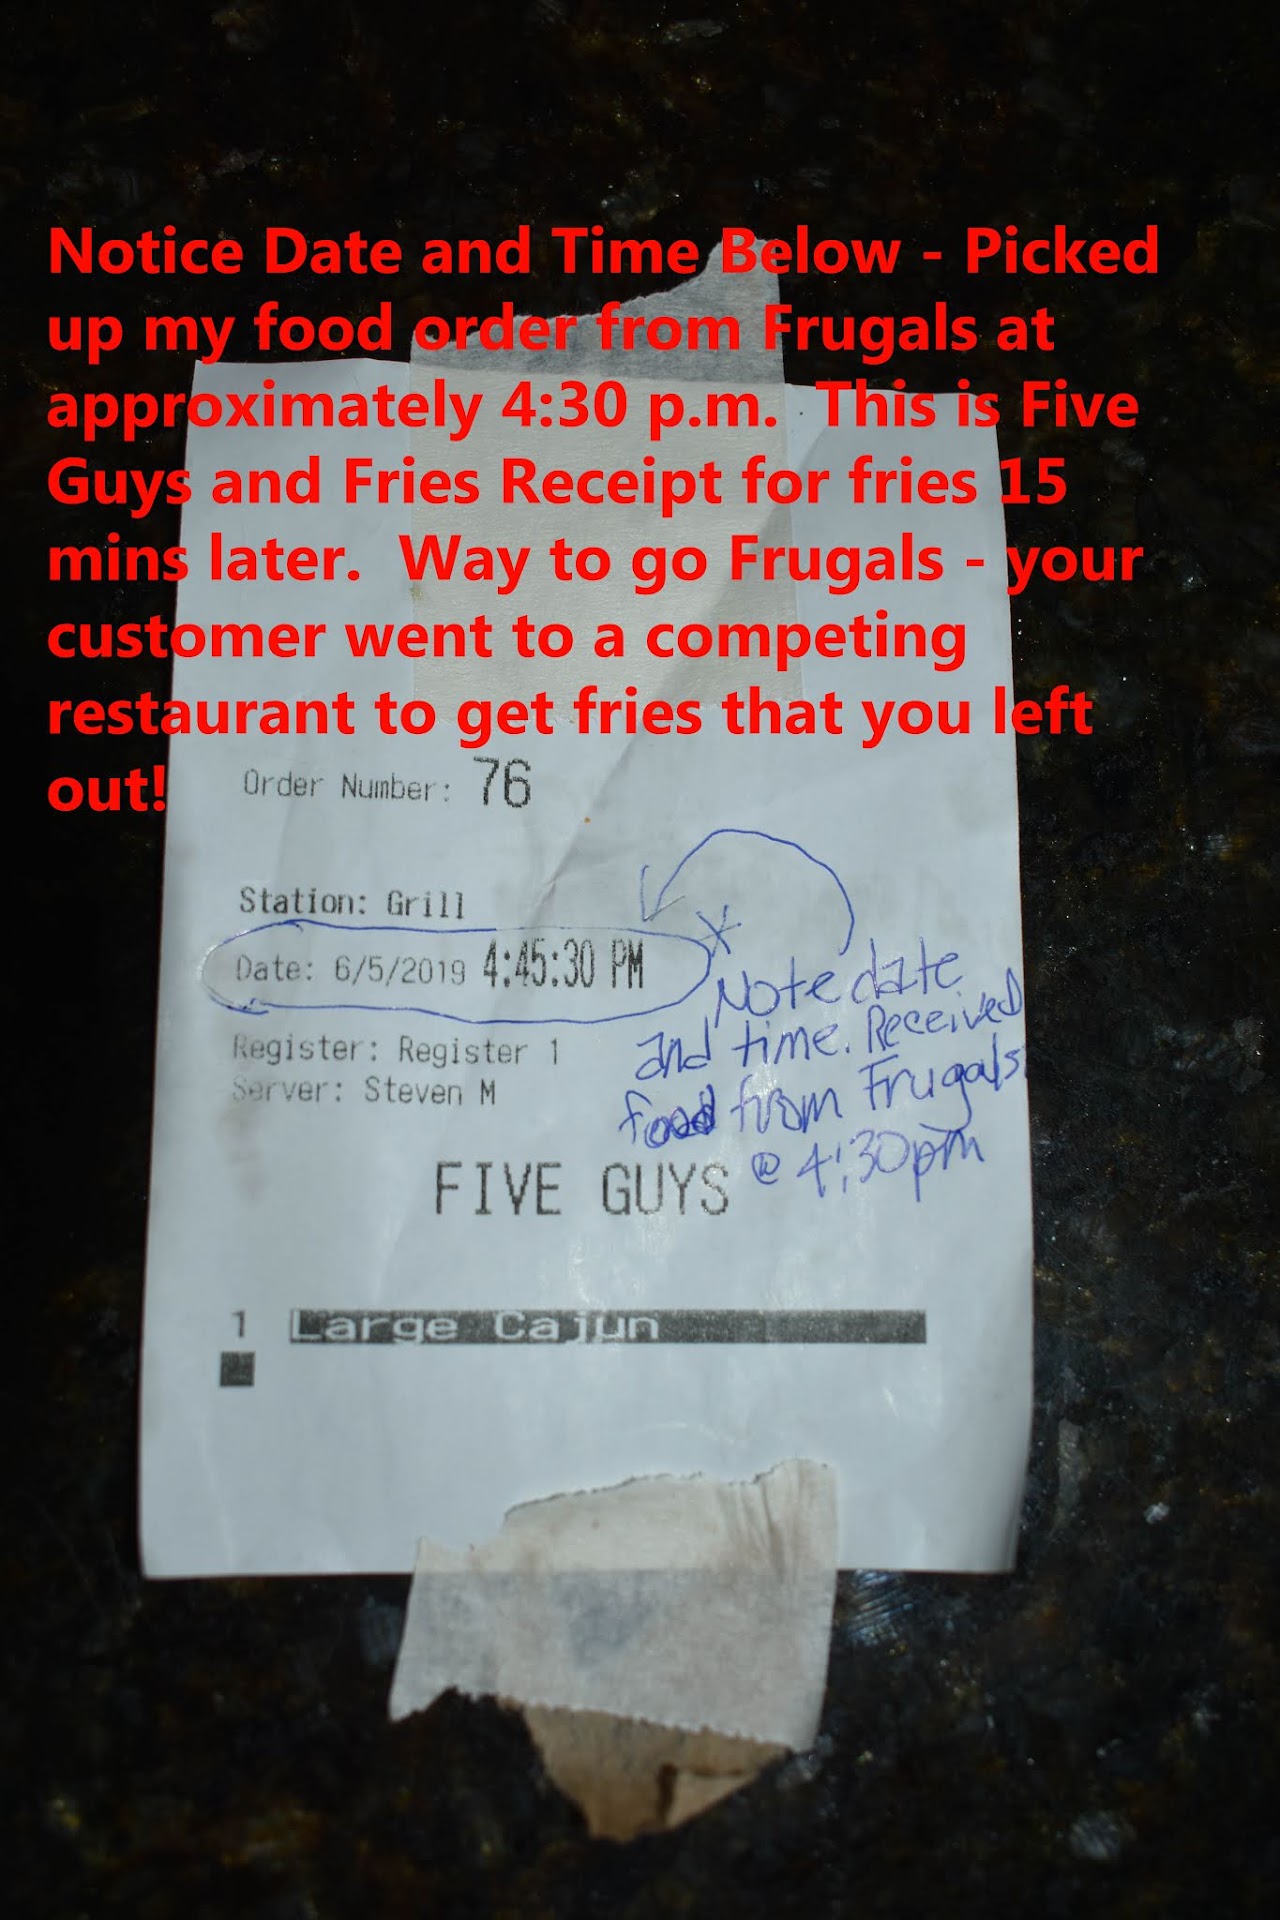 Notice Date and Time Below - Picked
up my food order from Frugals at
approximately 4:30 p.m. This is Five
Guys and Fries Receipt for fries 15
mins later. Way to go Frugals - your
customer went to a competing
restaurant to get fries that you left
out!
Order Number: 76
Station: Grill
Date: 6/5/2019 4:45:30 PM
* Note date
and time. Received
food from Frugals
@ 4:30pm
Register: Register 1
Server: Steven M
FIVE GUYS
1 Large Cajun